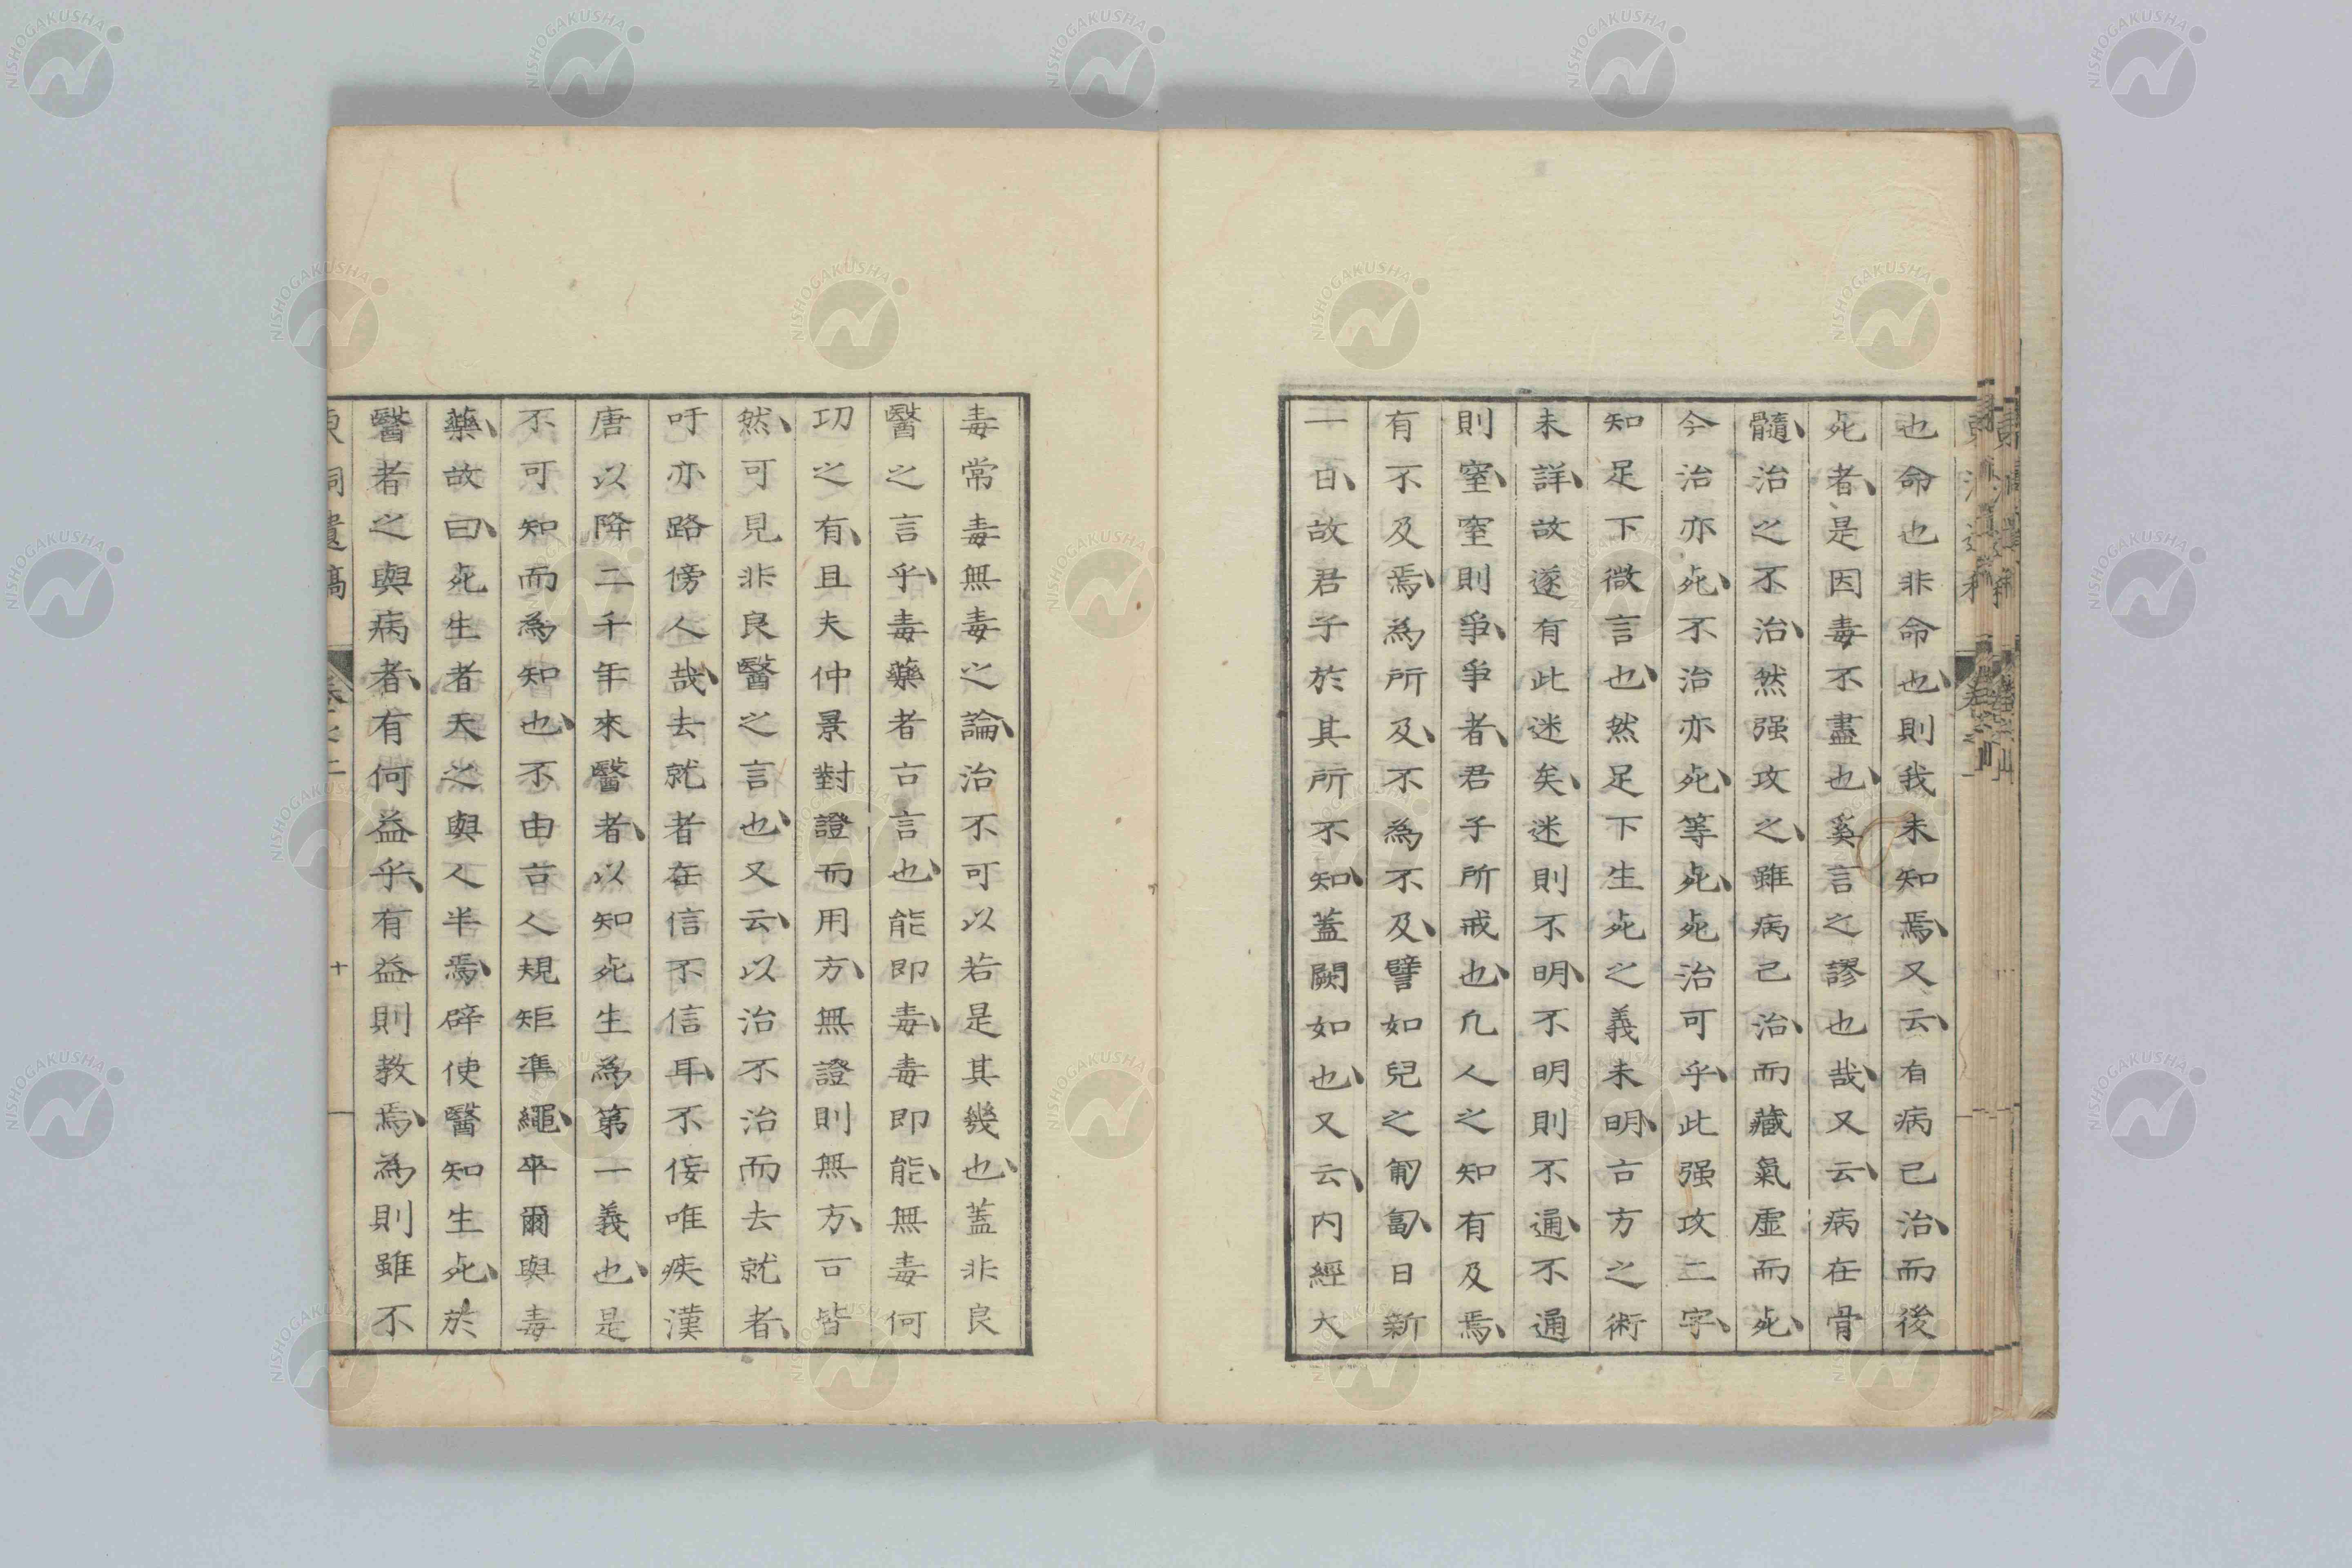 也命也非命也、則我未知焉、又云、有病已治、而後
死者、是因毒不盡也、奚言之謬也哉、又云、病在骨
髓、治之不治、然强攻之、雖病已治、而藏氣虛而死、
今治亦死、不治亦死、等死、死治可乎、此强攻二字、
知足下微言也、然足下生死之義未明、古方之術
未詳、故遂有此迷矣、迷則不明、不明則不通、不通
則窒、窒則爭、爭者、君子所戒也、凡人之知有及焉、
有不及焉、為所及、不為不及、譬如兒之匍匐、日新
一日、故君子於其所不知、蓋闕如也、又云、内經大
毒常毒無毒之論、治不可以若是其幾也、蓋非良
醫之言乎、毒藥者古言也、能即毒、毒即能、無毒何
功之有、且夫仲景對證而用方、無證則無方、古皆
然、可見非良醫之言也、又云、以治不治而去就者、
吁亦路傍人哉、去就者在信不信耳、不佞唯疾漢
唐以降二千年來醫者、以知死生為第一義也、是
不可知而為知也、不由古人規矩準繩、卒爾與毒
藥、故曰、死生者天之與人半焉、辟使醫知生死、於
醫者之與病者、有何益乎、有益則教焉、為則雖不
東洞遺稿 卷之二 十
NISHOGAKUSHA